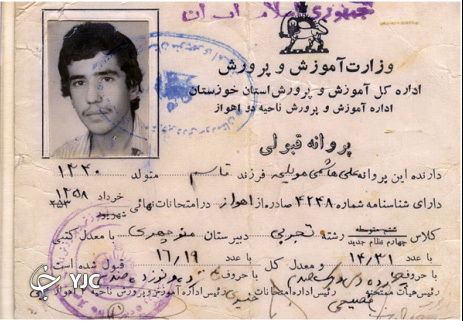 جمهوری اسلامی ایران
وزارت آموزش و پرورش
اداره کل آموزش و پرورش استان خوزستان
اداره آموزش و پرورش ناحیه دو اهواز
پروانه قبولی
دارنده این پروانه علی هاشمی فرزند قاسم متولد ۱۳۴۰
دارای شناسنامه شماره ۴۲۴۸ صادره از اهواز در امتحانات نهائی خرداد شهریور ۱۳۵۸
کلاس ششم متوسطه چهارم نظام جدید رشته تجربی دبیرستان منوچهری با معدل کتبی
با عدد ۱۴/۳۱ و معدل کل با عدد ۱۶/۱۹ قبول شده است
با حروف با حروف
رئیس هیأت ممتحنه رئیس اداره امتحانات رئیس اداره آموزش و پرورش ناحیه ۲ اهواز
YJC